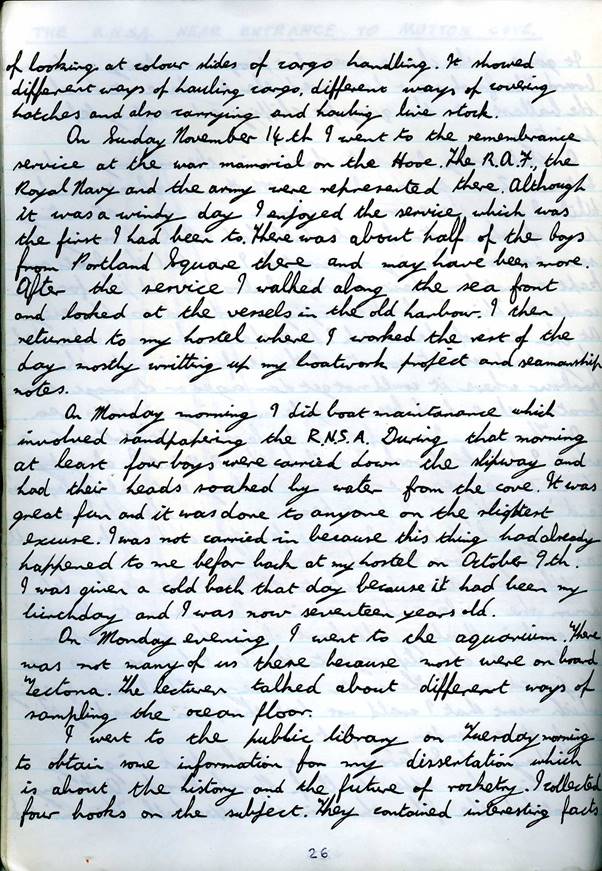 THE R.N.S.A NEAR ENTRANCE TO MUTTON COVE.
of looking at colour slides of cargo handling. It showed
different ways of hauling cargo, different ways of covering
hatches and also carrying and hauling live stock.
On Sunday November 14th I went to the remembrance
service at the war memorial on the Hooe. The R.A.F., the
Royal Navy and the army were represented there. Although
it was a windy day I enjoyed the service, which was
the first I had been to. There was about half of the boys
from Portland Square there and may have been more.
After the service I walked along the sea front
and looked at the vessels in the old harbour. I then
returned to my hostel where I worked the rest of the
day mostly writting up my boatwork project and seamanship
notes.
On Monday morning I did boat maintanance which
involved sandpapering the R.N.S.A. During that morning
at least four boys were carried down the slipway and
had their heads soaked by water from the cove. It was
great fun and it was done to anyone on the slightest
excuse. I was not carried in because this thing had already
happened to me befor back at my hostel on October 9th.
I was given a cold bath that day because it had been my
birthday and I was now seventeen years old.
On Monday evening I went to the aquarium. There
was not many of us there because most were on board
Tectona. The lecturer talked about different ways of
sampling the ocean floor.
I went to the public library on Tuesday morning
to obtain some information for my dissertation which
is about the history and the future of rocketry. I collected
four books on the subject. They contained interesting facts
26